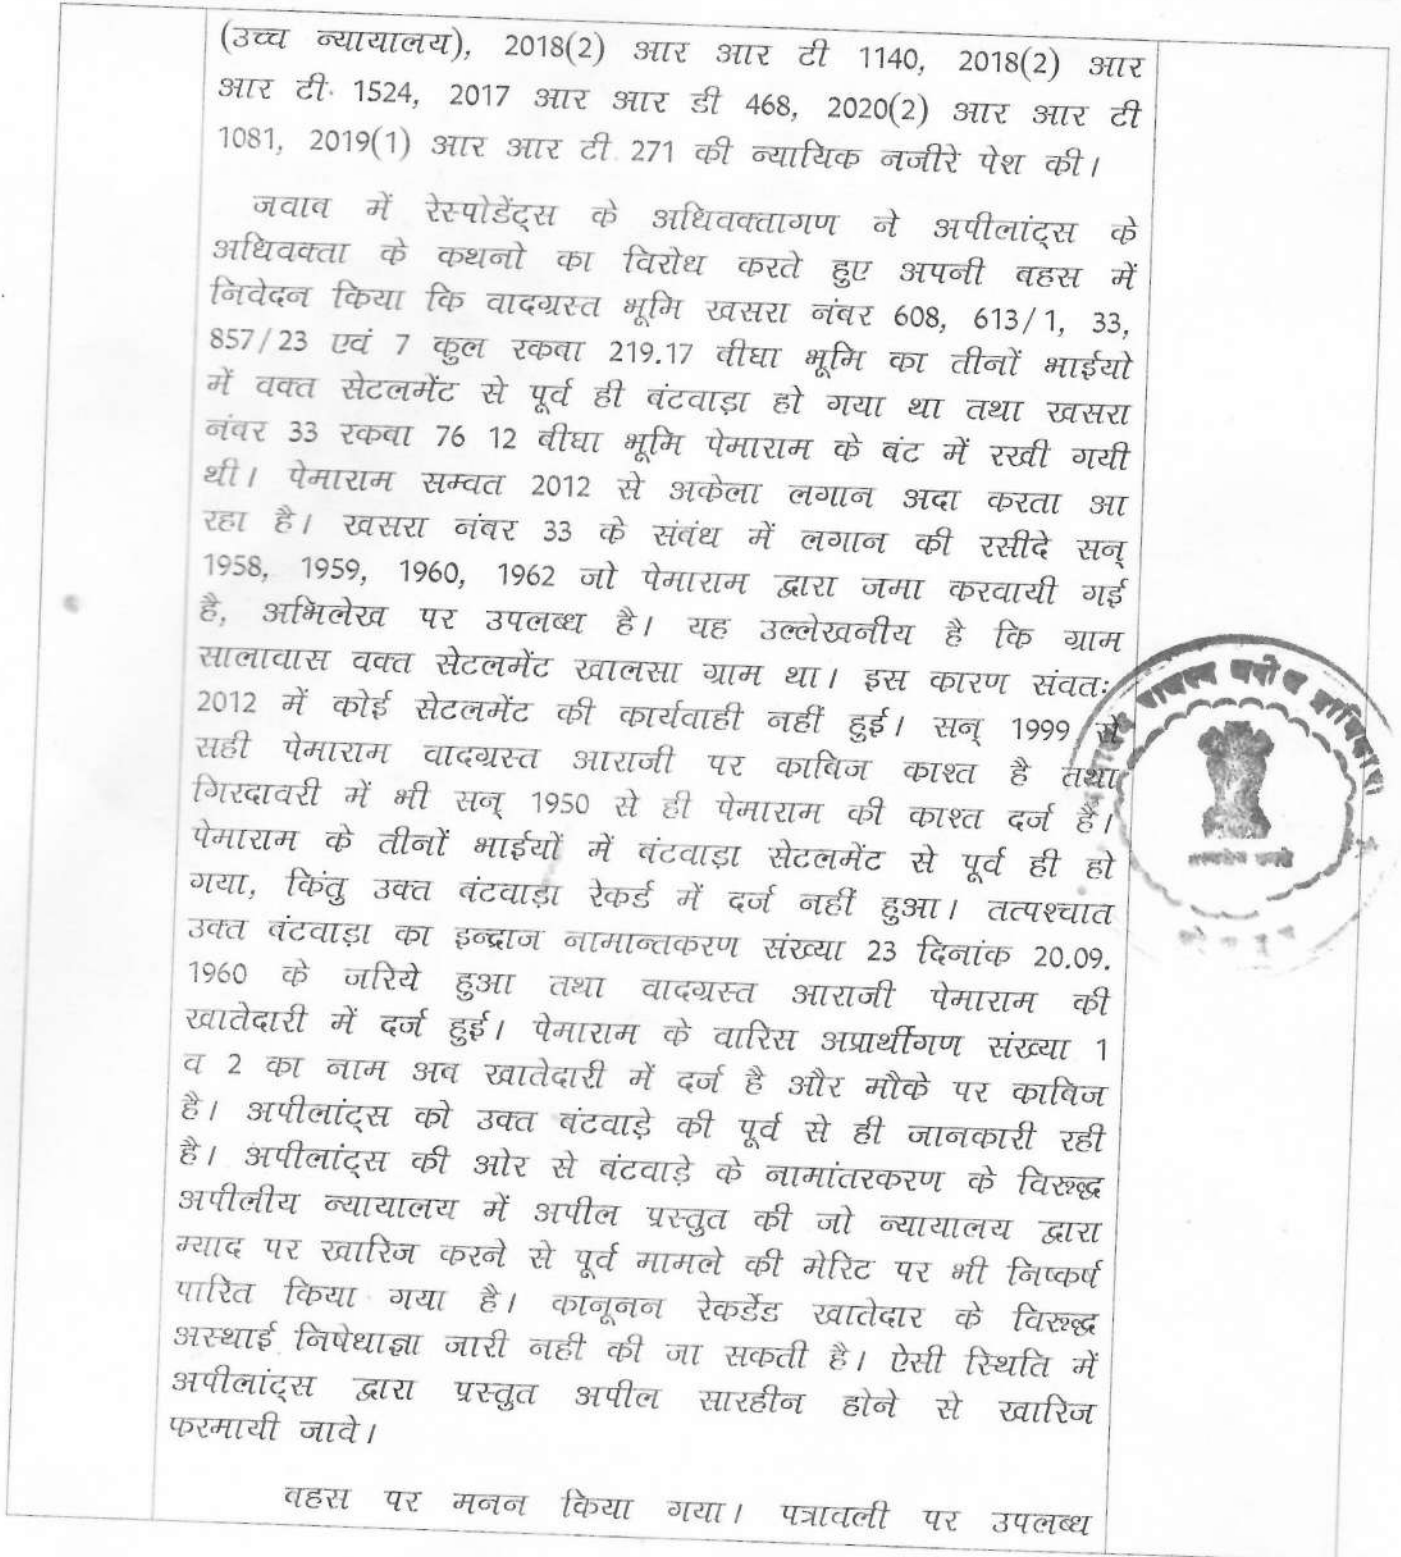 (उच्च न्यायालय), 2018(2) आर आर टी 1140, 2018(2) आर
आर टी 1524, 2017 आर आर डी 468, 2020(2) आर आर टी
1081, 2019(1) आर आर टी 271 की न्यायिक नजीरे पेश की।
जवाब में रेस्पोडेंट्स के अधिवक्तागण ने अपीलांट्स के
अधिवक्ता के कथनो का विरोध करते हुए अपनी बहस में
निवेदन किया कि वादग्रस्त भूमि खसरा नंबर 608, 613/1, 33,
857/23 एवं 7 कुल रकबा 219.17 बीघा भूमि का तीनों भाईयो
में वक्त सेटलमेंट से पूर्व ही बंटवाड़ा हो गया था तथा खसरा
नंबर 33 रकबा 76 12 बीघा भूमि पेमाराम के बंट में रखी गयी
थी। पेमाराम सम्वत 2012 से अकेला लगान अदा करता आ
रहा है। खसरा नंबर 33 के संबंध में लगान की रसीदे सन्
1958, 1959, 1960, 1962 जो पेमाराम द्वारा जमा करवायी गई
है, अभिलेख पर उपलब्ध है। यह उल्लेखनीय है कि ग्राम
सालावास वक्त सेटलमेंट खालसा ग्राम था। इस कारण संवतः
2012 में कोई सेटलमेंट की कार्यवाही नहीं हुई। सन् 1999 से
सही पेमाराम वादग्रस्त आराजी पर काबिज काश्त है तथा
गिरदावरी में भी सन् 1950 से ही पेमाराम की काश्त दर्ज है।
पेमाराम के तीनों भाईयों में बंटवाड़ा सेटलमेंट से पूर्व ही हो
गया, किंतु उक्त बंटवाड़ा रेकर्ड में दर्ज नहीं हुआ। तत्पश्चात
उक्त बंटवाड़ा का इन्द्राज नामान्तकरण संख्या 23 दिनांक 20.09.
1960 के जरिये हुआ तथा वादग्रस्त आराजी पेमाराम की
खातेदारी में दर्ज हुई। पेमाराम के वारिस अप्रार्थीगण संख्या 1
व 2 का नाम अब खातेदारी में दर्ज है और मौके पर काबिज
है। अपीलांट्स को उक्त बंटवाड़े की पूर्व से ही जानकारी रही
है। अपीलांट्स की ओर से बंटवाड़े के नामांतरकरण के विरूद्ध
अपीलीय न्यायालय में अपील प्रस्तुत की जो न्यायालय द्वारा
म्याद पर खारिज करने से पूर्व मामले की मेरिट पर भी निष्कर्ष
पारित किया गया है। कानूनन रेकर्डेड खातेदार के विरूद्ध
अस्थाई निषेधाज्ञा जारी नही की जा सकती है। ऐसी स्थिति में
अपीलांट्स द्वारा प्रस्तुत अपील सारहीन होने से खारिज
फरमायी जावे।
बहस पर मनन किया गया। पत्रावली पर उपलब्ध